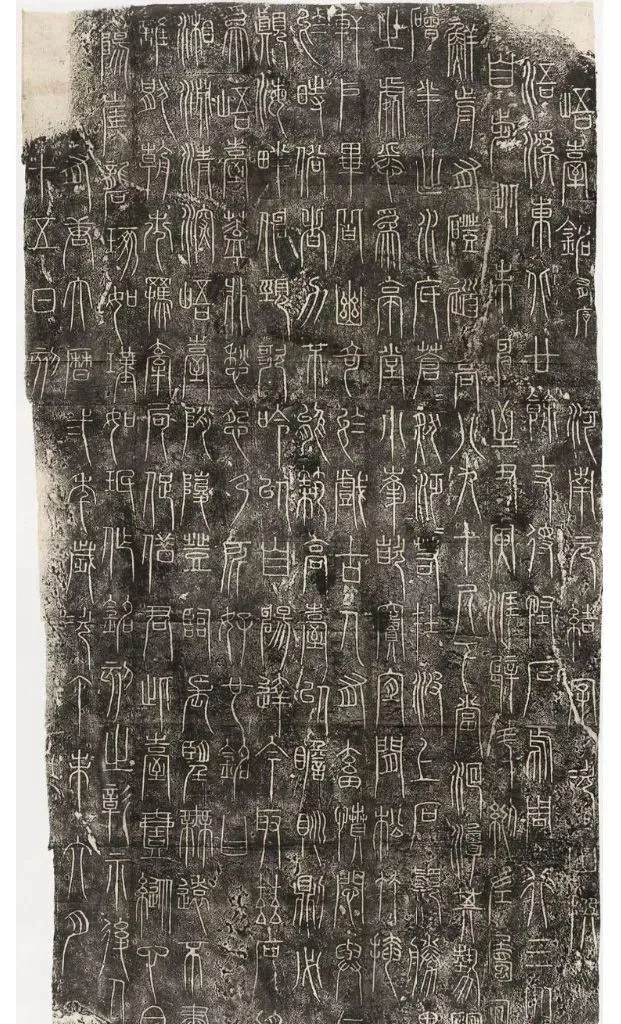 峿臺銘有序 河南元結字次山撰
浯溪東北廿餘丈得怪石焉周行三四
百步從未申至丑寅涯壁斗絕左屬回
鮮前有磴道高八九十尺下當洄潭其勢
磳半出水底蒼然泛泛若在波上石巔勝異
之處悉為亭堂小峰嵌竇宜間松竹掩
軒戶畢皆幽奇於戲古人有畜憤悶與
於時俗者力不能築高臺以瞻眺則必
巔海畔伸頸歌吟以自暢達今取茲石
為峿臺蓋非愁怨乃所好也銘曰
湘淵清深峿臺陗陵登臨長望無遠不盡
誰厭朝市羈牽局促借君此臺壹縱心目
陽崖礱琢如瑾如珉作銘刻之彰示後人
有唐大曆二年歲次丁未六月
十五日刻